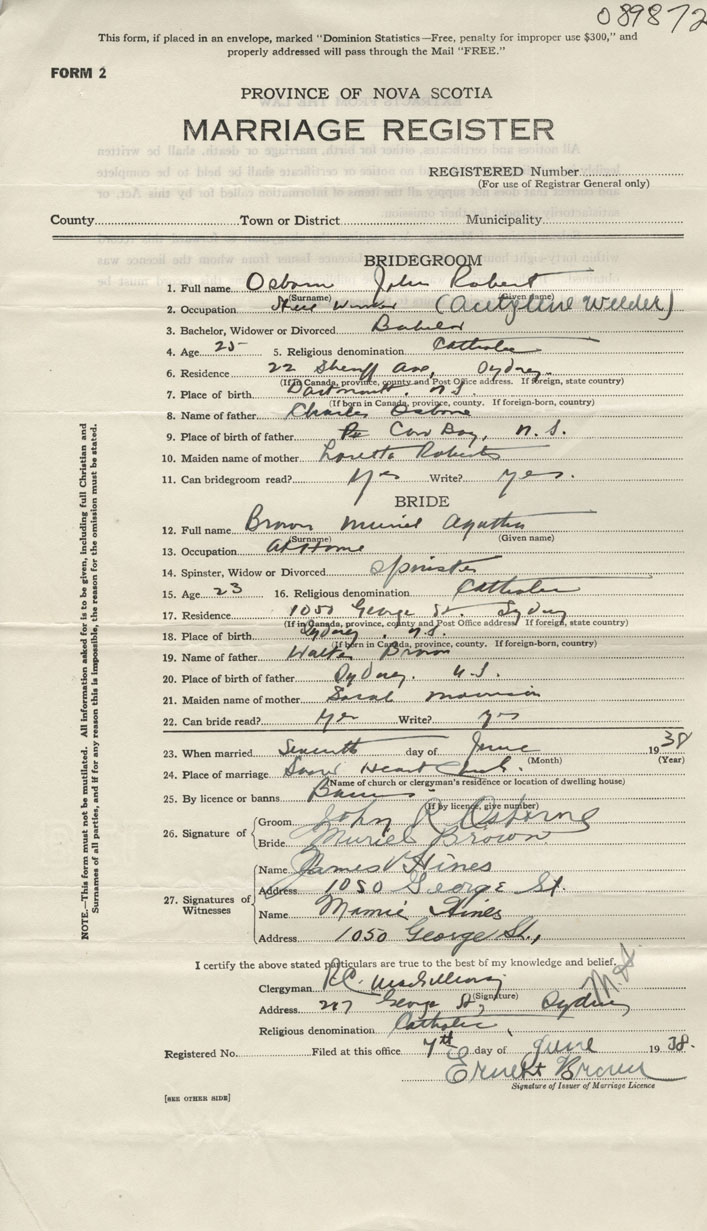 089872
This form, if placed in an envelope, marked "Dominion Statistics—Free, penalty for improper use $300," and
properly addressed will pass through the Mail "FREE."
FORM 2
PROVINCE OF NOVA SCOTIA
MARRIAGE REGISTER
REGISTERED Number
(For use of Registrar General only)
County Town or District Municipality
BRIDEGROOM
1. Full name Osborn John Robert
(Surname) (Given name)
2. Occupation Steel Worker (Acetylene Welder)
3. Bachelor, Widower or Divorced Bachelor
4. Age 25 5. Religious denomination Catholic
6. Residence 22 Sheriff Ave, Sydney
(If in Canada, province, county and Post Office address. If foreign, state country)
7. Place of birth Dartmouth, N.S.
(If born in Canada, province, county. If foreign-born, country)
8. Name of father Charles Osborne
9. Place of birth of father Cow Bay, N.S.
10. Maiden name of mother Loretta Roberts
11. Can bridegroom read? Yes Write? Yes.
BRIDE
12. Full name Brown Muriel Agatha
(Surname) (Given name)
13. Occupation At Home
14. Spinster, Widow or Divorced Spinster
15. Age 23 16. Religious denomination Catholic
17. Residence 1050 George St. Sydney
(If in Canada, province, county and Post Office address. If foreign, state country)
18. Place of birth Sydney, N.S.
(If born in Canada, province, county. If foreign-born, country)
19. Name of father Walter Brown
20. Place of birth of father Sydney. N.S.
21. Maiden name of mother Sarah Morrison
22. Can bride read? Yes Write? Yes
23. When married Seventh day of June 1938
(Month) (Year)
24. Place of marriage Sacred Heart Church.
(Name of church or clergyman's residence or location of dwelling house)
25. By licence or banns Banns
(If by licence, give number)
26. Signature of Groom John R Osborne
Bride Muriel Brown
27. Signatures of Witnesses Name James V Hines
Address 1050 George St.
Name Mamie Hines
Address 1050 George St.,
I certify the above stated particulars are true to the best of my knowledge and belief.
Clergyman R.C. MacGillivray
(Signature)
Address 217 George St, Sydney N.S
Religious denomination Catholic
Registered No. Filed at this office 7th day of June 1938.
Ernest Brown
Signature of Issuer of Marriage Licence
[SEE OTHER SIDE]
NOTE.—This form must not be mutilated. All information asked for is to be given, including full Christian and
Surnames of all parties, and if for any reason this is impossible, the reason for the omission must be stated.